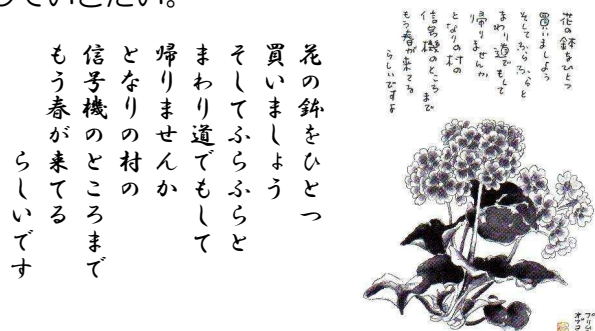 っていきたい。
花の鉢をひとつ
買いましょう
そしてふらふらと
まわり道でもして
帰りませんか
となりの村の
信号機のところまで
もう春が来てる
らしいです
花の鉢をひとつ
買いましょう
そしてふらふらと
まわり道でもして
帰りませんか
となりの村の
信号機のところまで
もう春が来てる
らしいですよ
プリムラ
オブコ